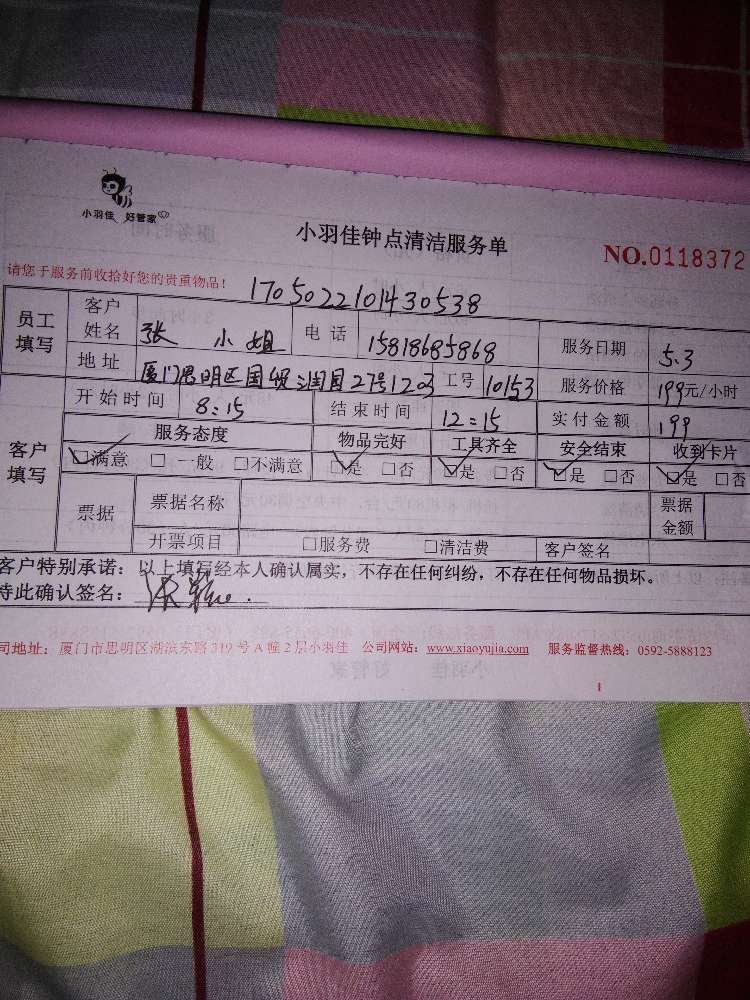 小羽佳 好管家
小羽佳钟点清洁服务单
NO.0118372
请您于服务前收拾好您的贵重物品!
1705022101430538
员工填写 客户姓名 张 小姐 电话 15818685868 服务日期 5.3
地址 厦门思明区国贸润园27号1203 工号 10153 服务价格 199元/小时
客户填写 开始时间 8:15 结束时间 12:15 实付金额 199
服务态度 物品完好 工具齐全 安全结束 收到卡片
☑满意 □一般 □不满意 ☑是 □否 ☑是 □否 ☑是 □否 ☑是 □否
票据 票据名称 票据金额
开票项目 □服务费 □清洁费 客户签名
客户特别承诺:以上填写经本人确认属实,不存在任何纠纷,不存在任何物品损坏。
特此确认签名:
司地址:厦门市思明区湖滨东路319号A幢2层小羽佳 公司网站:www.xiaoyujia.com 服务监督热线:0592-5888123